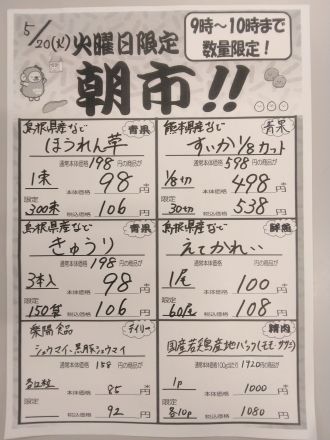 5/20(火)
火曜日限定
9時~10時まで
数量限定!
朝市!!
島根県産など
青果
ほうれん草
通常本体価格 198 円の商品が
1束
本体価格 98 円
限定
300束
税込価格 106 円
熊本県産など
青果
すいか1/8カット
通常本体価格 598 円の商品が
1/8切
本体価格 498 円
限定
30切
税込価格 538 円
島根県産など
青果
きゅうり
通常本体価格 198 円の商品が
3本入
本体価格 98 円
限定
150袋
税込価格 106 円
島根県産など
鮮魚
えてかれい
通常本体価格 円の商品が
1尾
本体価格 100 円
限定
60尾
税込価格 108 円
楽陽食品
デイリー
シュウマイ・黒豚シュウマイ
通常本体価格 158 円の商品が
各12粒
本体価格 85 円
限定
税込価格 92 円
精肉
国産若鶏産地パック(モモ・ササミ)
通常本体価格100gあたり 1720円の商品が
1p
本体価格 1000 円
限定
各10p
税込価格 1080 円